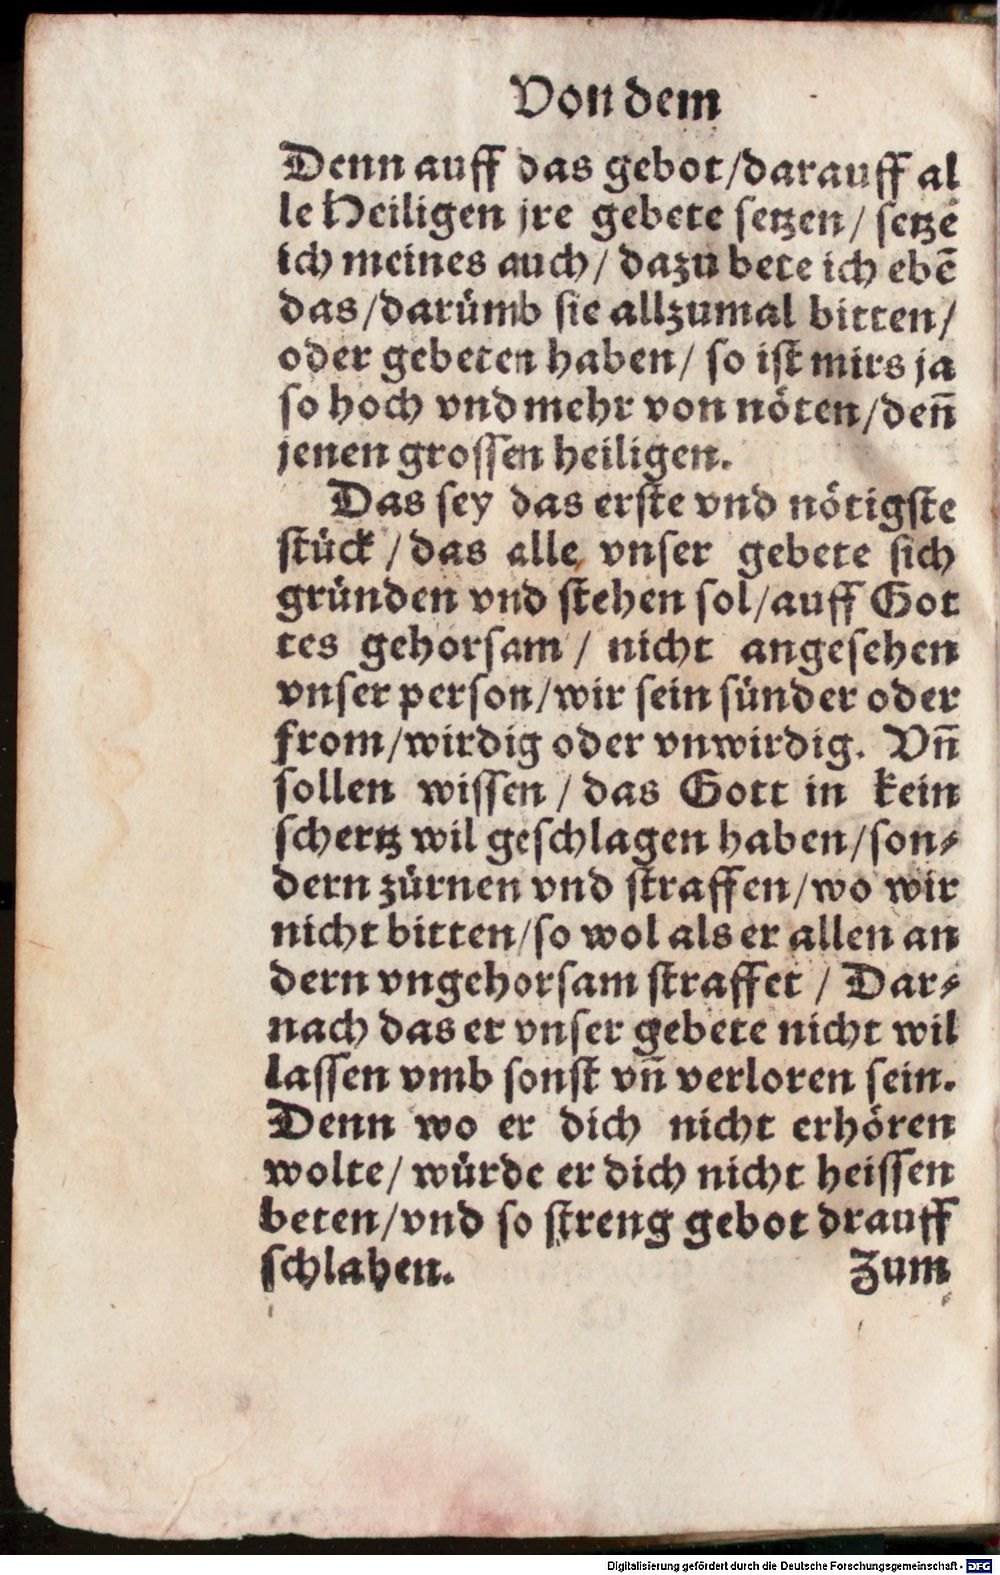 Von dem
Denn auff das gebot/darauff al
le Heiligen jre gebete setzen/ setze
ich meines auch/ dazu bete ich ebē
das/darümb sie allzumal bitten/
oder gebeten haben/ so ist mirs ja
so hoch vnd mehr von nöten/den̄
jenen grossen heiligen.
Das sey das erste vnd nötigste
stück/das alle vnser gebete sich
gründen vnd stehen sol/auff Got
tes gehorsam/ nicht angesehen
vnser person/wir sein sünder oder
from/wirdig oder vnwirdig. Vn̄
sollen wissen/das Gott in kein
schertz wil geschlagen haben/son⸗
dern zürnen vnd straffen/wo wir
nicht bitten/so wol als er allen an
dern vngehorsam straffet/ Dar⸗
nach das er vnser gebete nicht wil
lassen vmb sonst vn̄ verloren sein.
Denn wo er dich nicht erhören
wolte/ würde er dich nicht heissen
beten/vnd so streng gebot drauff
schlahen. Zum
Digitalisierung gefördert durch die Deutsche Forschungsgemeinschaft - DFG